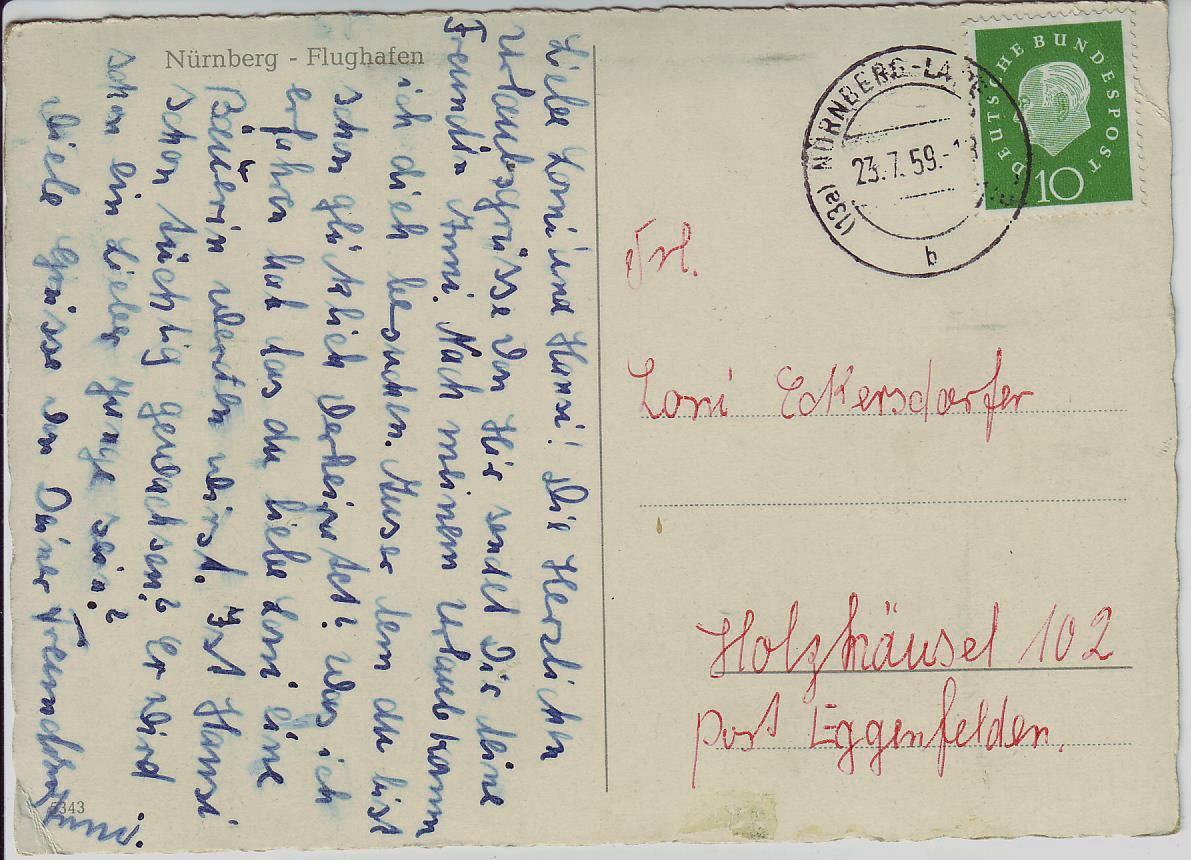 Nürnberg - Flughafen
Liebe Loni und Hansi! Die Herzlichen
Urlaubsgrüsse von Hir sendet Dir deine
Freundin Anni. Nach meinem Urlaub kann
ich dich besuchen. Auser dem du bist
schon glücklich verheiratet? Was ich
erfahren hab das du liebe Loni eine
Bäuerin werden wirst. Ist Hansi
schon tüchtig gewachsen? Er wird
schon ein Lieber Junge sein?
Viele Grüsse von Deiner Freundin
Anni.
5343
(13a) NÜRNBERG-LA
23.7.59.-18
q
DEUTSCHE BUNDESPOST
10
Frl.
Loni Eckersdorfer
Holzhäusel 102
Post Eggenfelden.